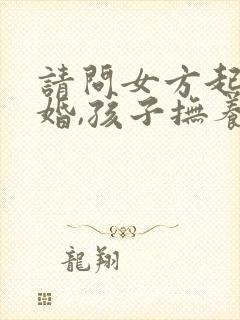 請問女方起
婚,孩子撫養
龍翔